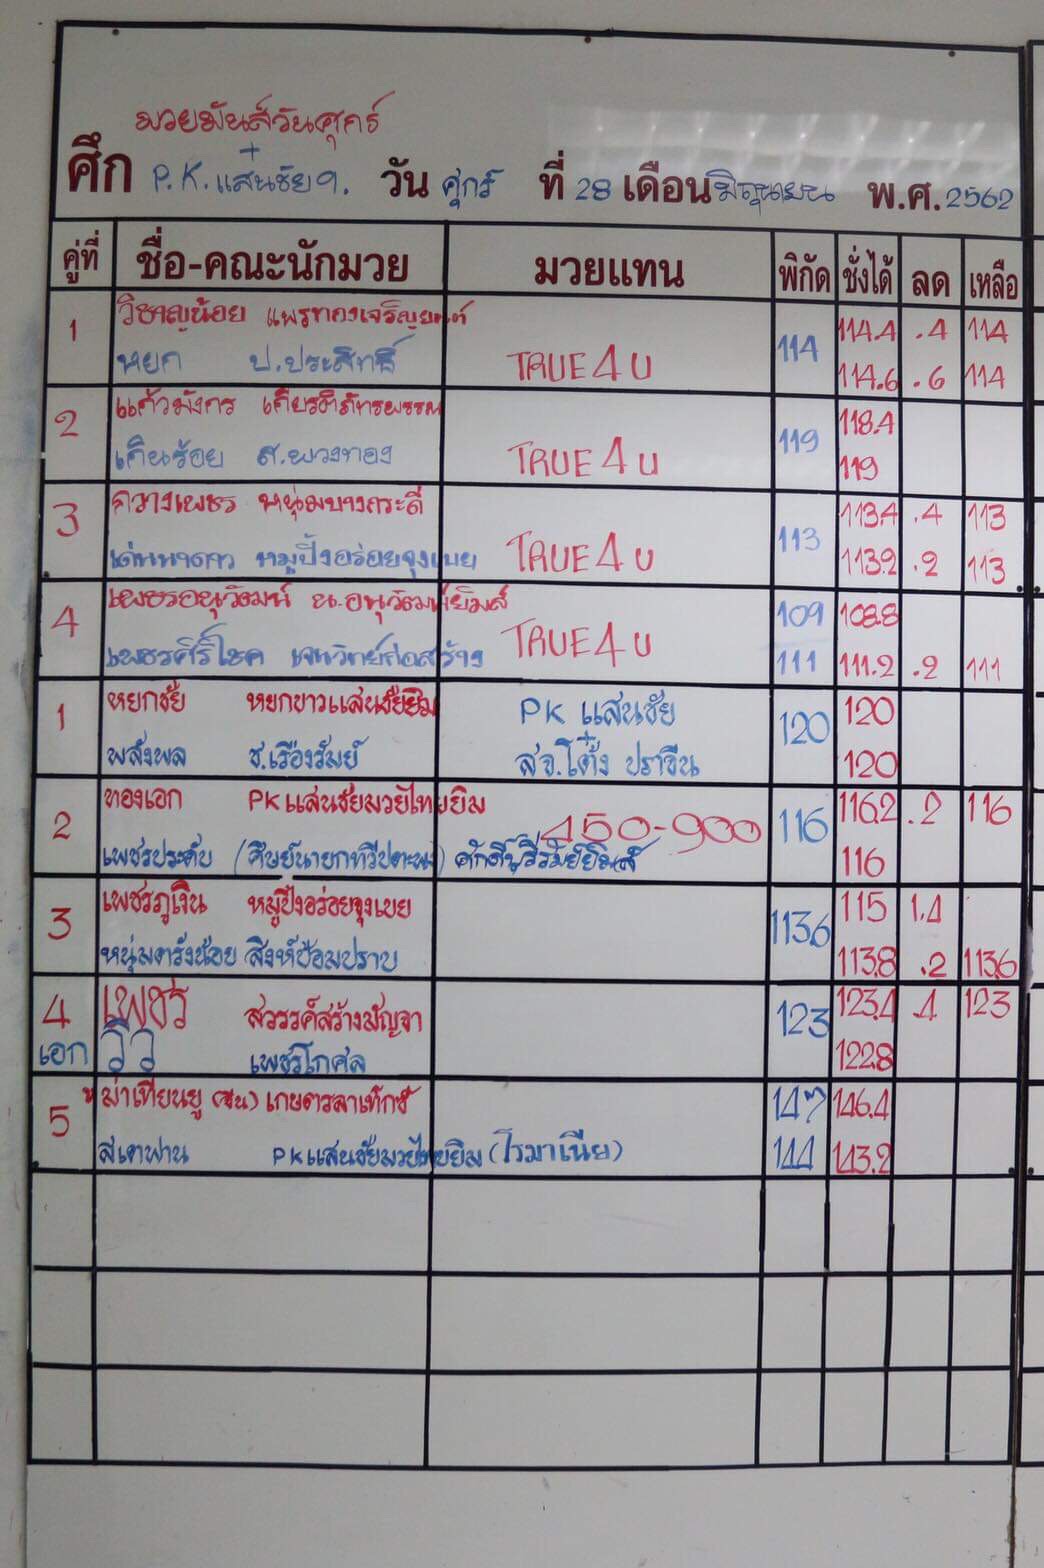 มวยมันส์วันศุกร์
+
ศึก P.K.แสนชัยฯ. วัน ศุกร์ ที่ 28 เดือน มิถุนายน พ.ศ. 2562
คู่ที่ ชื่อ-คณะนักมวย มวยแทน พิกัด ชั่งได้ ลด เหลือ
1 วิชาญน้อย แพรทองเจริญยนต์ 114.4 .4 114
หยก ป.ประสิทธิ์ TRUE4U 114 114.6 .6 114
2 แก้วมังกร เกียรติภัทรพรรณ 118.4
เดินร้อย ส.พวงทอง TRUE4U 119 119
3 กวางเพชร หนุ่มบางกระดี่ 113.4 .4 113
หมูปิ้งอร่อยจุงเบย TRUE4U 113 113.2 .2 113
4 เพชรอนุวัฒน์ น.อนุวัฒน์ยิมส์ 109 108.8
เพชรศิริโชค เจพวิทย์ก่อสร้าง TRUE4U 111 111.2 .2 111
1 หยกชัย หยกขาวแสนชัยยิม PK แสนชัย 120 120
พลังพล ช.เรืองรัมย์ + สจ.โต้ง ปราจีน 120
2 ทองเอก PKแสนชัยมวยไทยยิม 450-900 116 116.2 .2 116
เพชรประดับ (ศิษย์นายกทวีปตะพง) ศักดิ์บุรีรัมย์ยิมส์ 116
3 เพชรภูเงิน หมูปิ้งอร่อยจุงเบย 113.6 115 1.4
หนุ่มตรังน้อย สิงห์ป้อมปราบ 113.8 .2 113.6
4 เพชร สวรรค์สร้างปัญจา 123 123.4 .4 123
เอก วิว เพชรโกศล 122.8
5 ม่าเทียนยู (จีน) เกษตรลาเท็กซ์ 147 146.4
สเตฟาน PKแสนชัยมวยไทยยิม (โรมาเนีย) 144 143.2